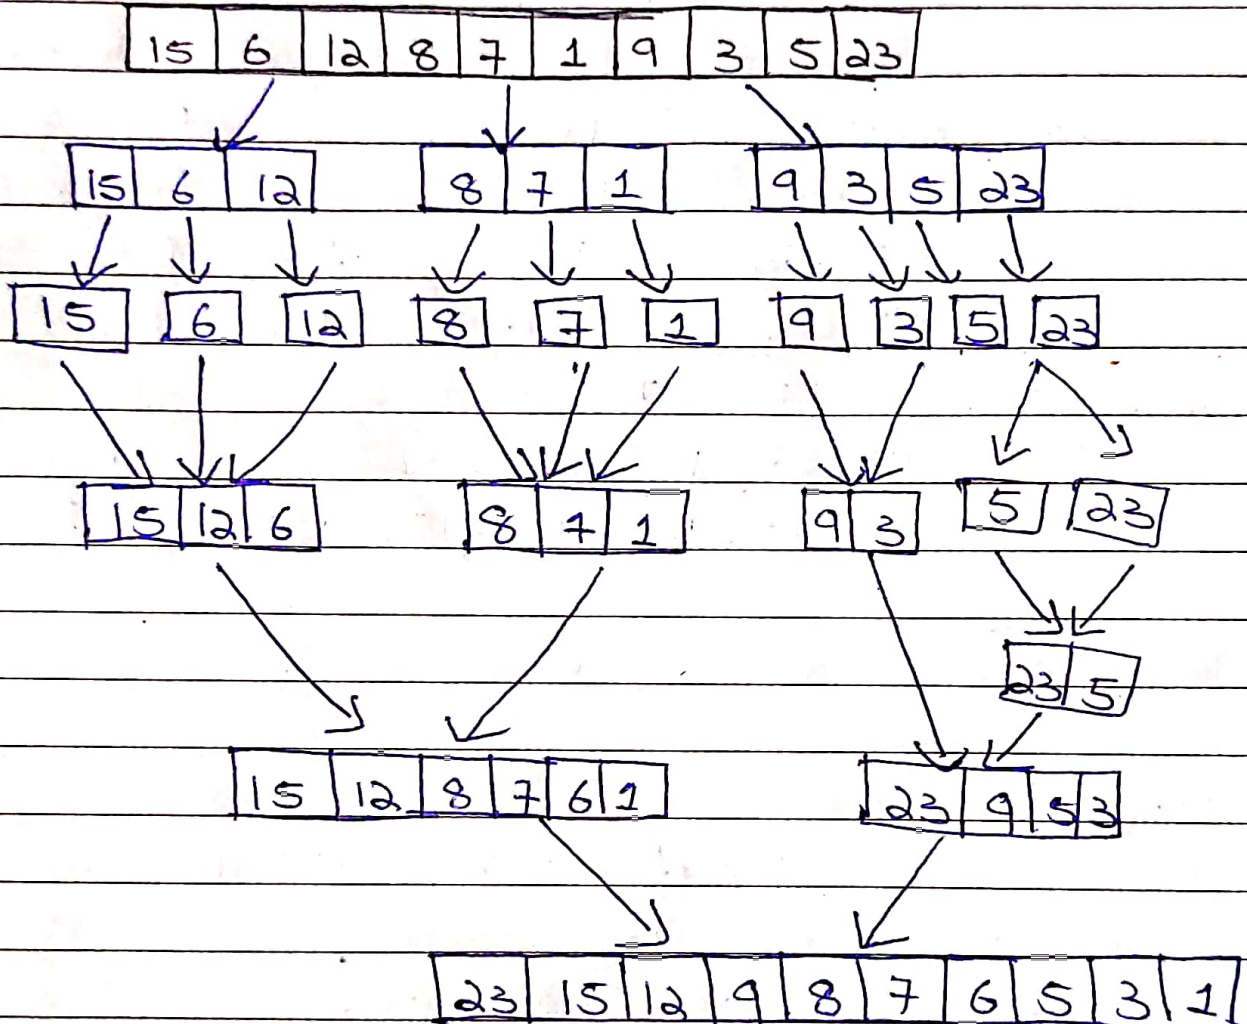 15 6 12 8 7 1 9 3 5 23
15 6 12 8 7 1 9 3 5 23
15 6 12 8 7 1 9 3 5 23
15 12 6 8 7 1 9 3 5 23
23 5
15 12 8 7 6 1 23 9 5 3
23 15 12 9 8 7 6 5 3 1